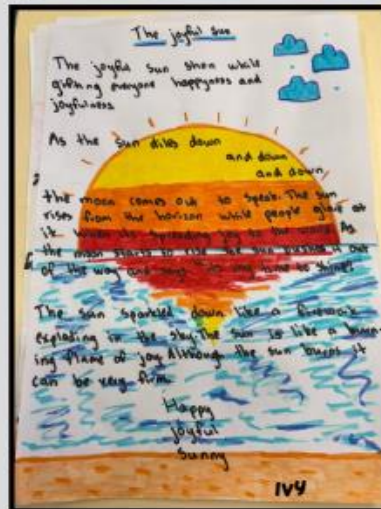 The joyful sun
The joyful sun shon while
gifting everyone happyness and
joyfulness
As the sun dives down
and down
and down
the moon comes out to speak. The sun
rises from the horizon while people glare at
it when its spreading joy to the world. As
the moon starts to rise the sun pushes it out
of the way and says "Its my time to shine!"
The sun sparkled down like a firework
exploding in the sky. The sun is like a burn
ing flame of joy. Although the sun burns it
can be very firm.
Happy
joyful
sunny
Ivy